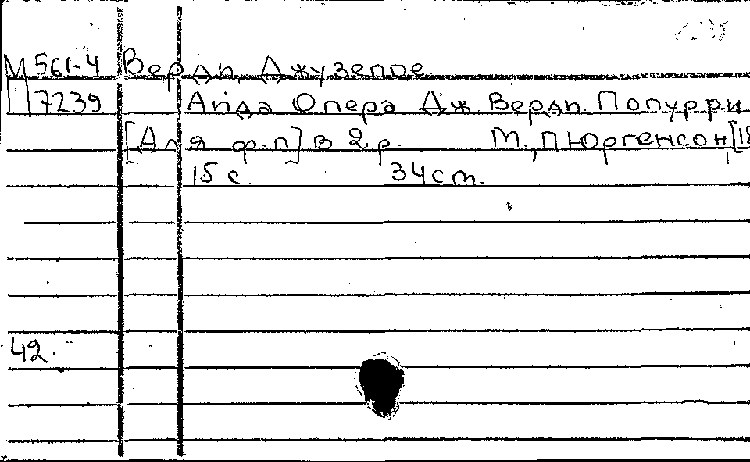 М 561-4 Верди, Джузеппе
7239 Аида Опера Дж. Верди. Попурри
[Для ф.п] в 2 р. М., П. Юргенсон [18
15 с. 34 см.
42.